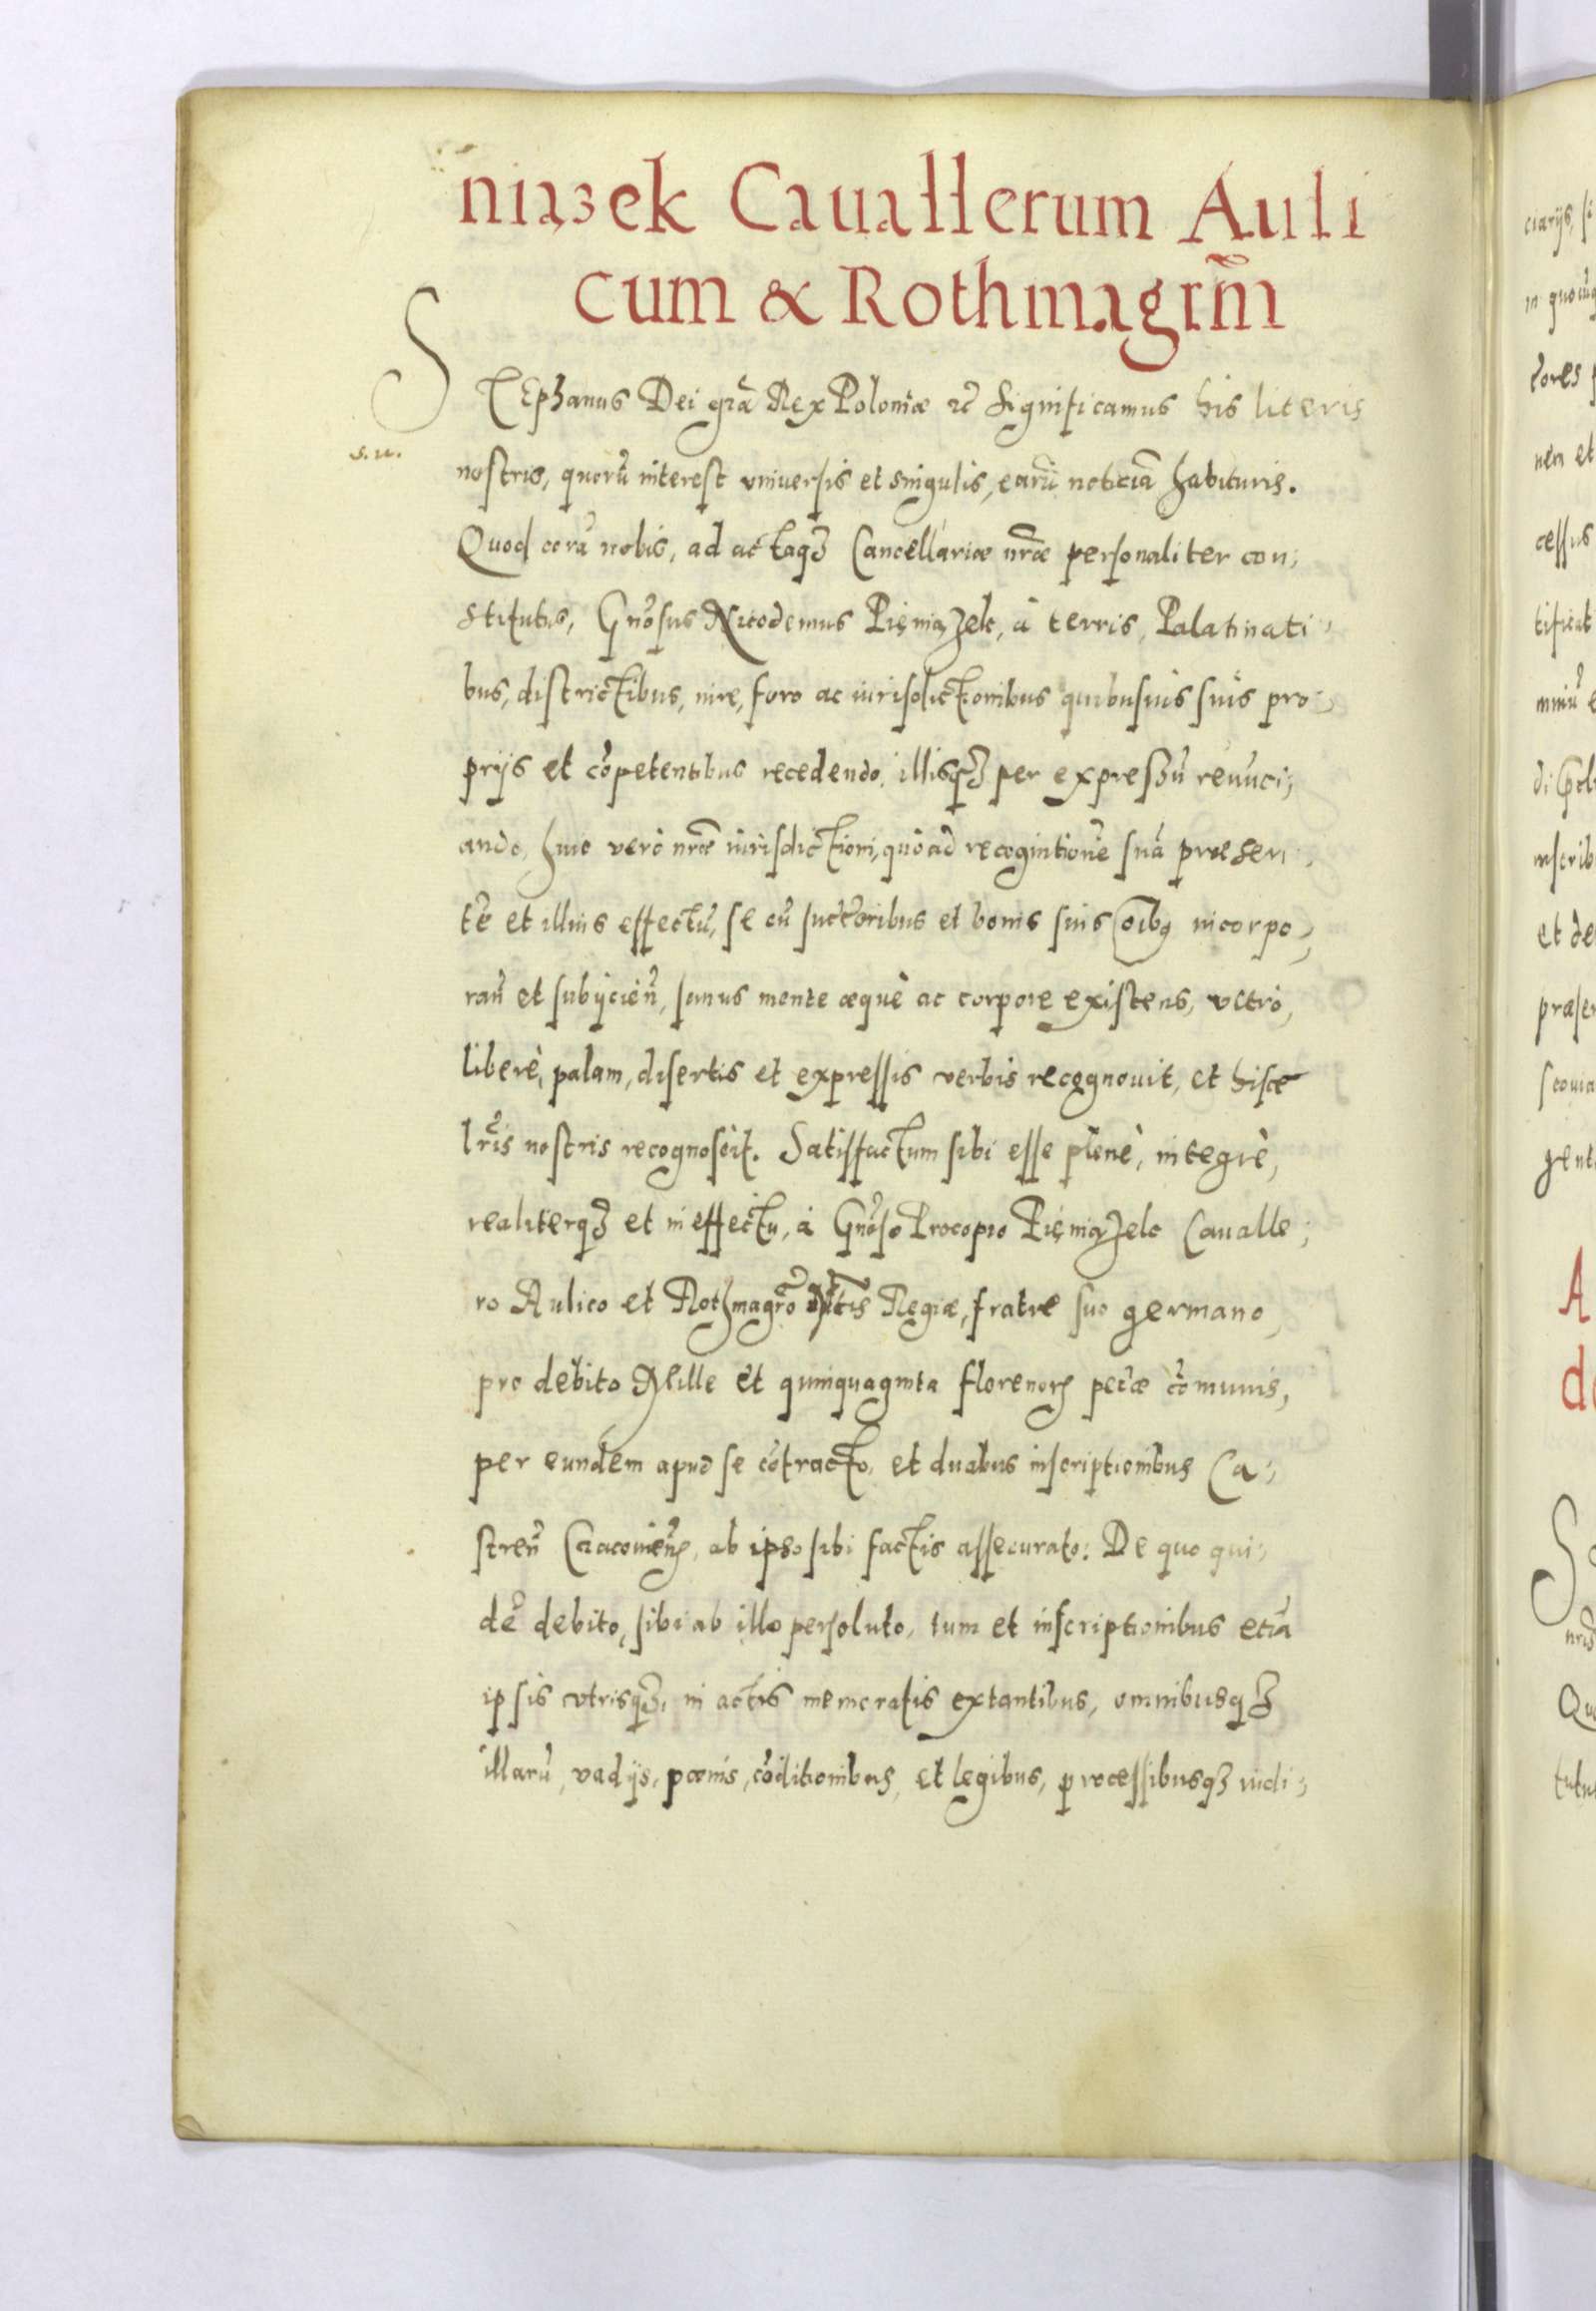 niązek Cauallerum Auli
cum & Rothmagrm̃
STEphanus Dei grã Rex Poloniæ etc̃ Significamus his literis
s.u.
nostris, quorũ interest vniuersis et singulis, earũ noticiã habituris.
Quod corã nobis, ad actaqꝫ Cancellariæ nrã̃e personaliter con:
stitutus, Gnõsus Nicodemus Pieniązek, à terris, Palatinati:
bus, districtibus, iure, foro ac iurisdictionibus quibusuis suis pro:
prijs et cõpetentibus recedendo, illisqꝫ per expressũ renũci:
ando, huic verò nrã̃e iurisdictioni, quò ad recognitionẽ suã præsen:
tẽ et illius effectũ, se cũ succẽoribus et bonis suis õibꝰ incorpo:
rañ et subijcieñ, sanus mente æquè ac corpore existens, vltrò,
liberè, palam, disertis et expressis verbis recognouit, et hisce
lrĩs nostris recognoscit. Satisfactum sibi esse plenè, integrè,
realiterqꝫ et in effectu, à Gnõso Procopio Pieniązek Cavalle:
ro Aulico et Rothmagrõ Mtĩs Regiæ, fratre suo germano,
pro debito Mille et quinquaginta florenorꝫ pecũ̃æ cõmunis,
per eundem apud se cõtracto, et duabus inscriptionibus Ca:
streñ Cracouieñ, ab ipso sibi factis assecurato: De quo qui:
dẽ debito, sibi ab illo persoluto, tum et inscriptionibus etiã
ipsis vtrisqꝫ, in actis memoratis extantibus, omnibusqꝫ
illarũ, vadijs, pœnis, cõditionibus, et legibus, processibusqꝫ iudi:
ciarijs, si